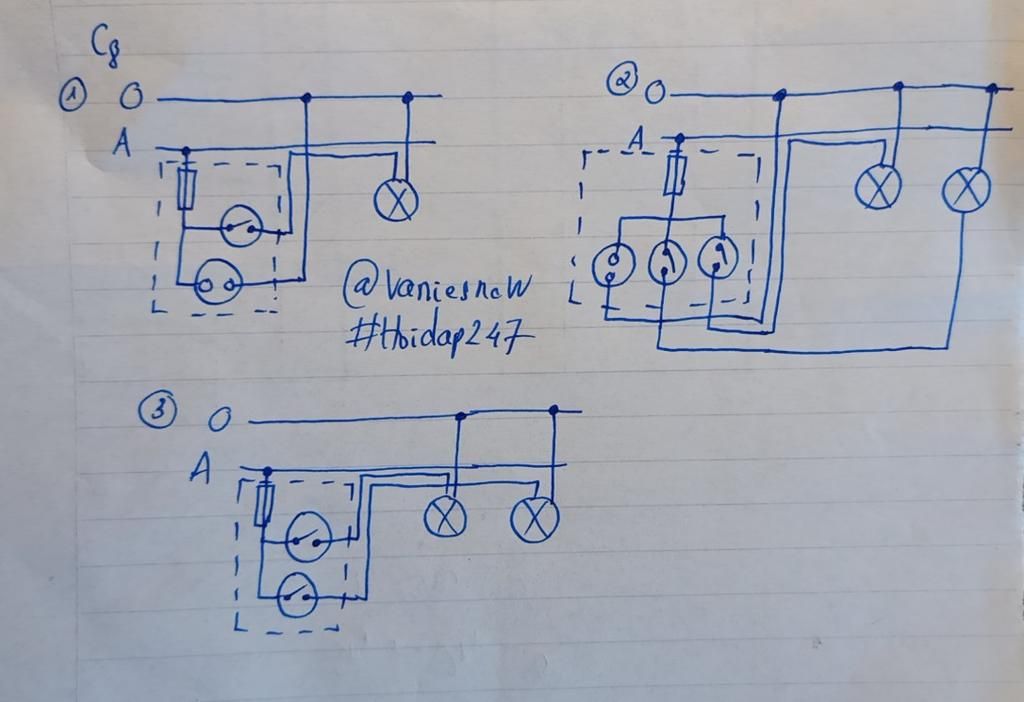 C8
① O
A
② O
A
@vaniesnow
#Hoidap247
③ O
A